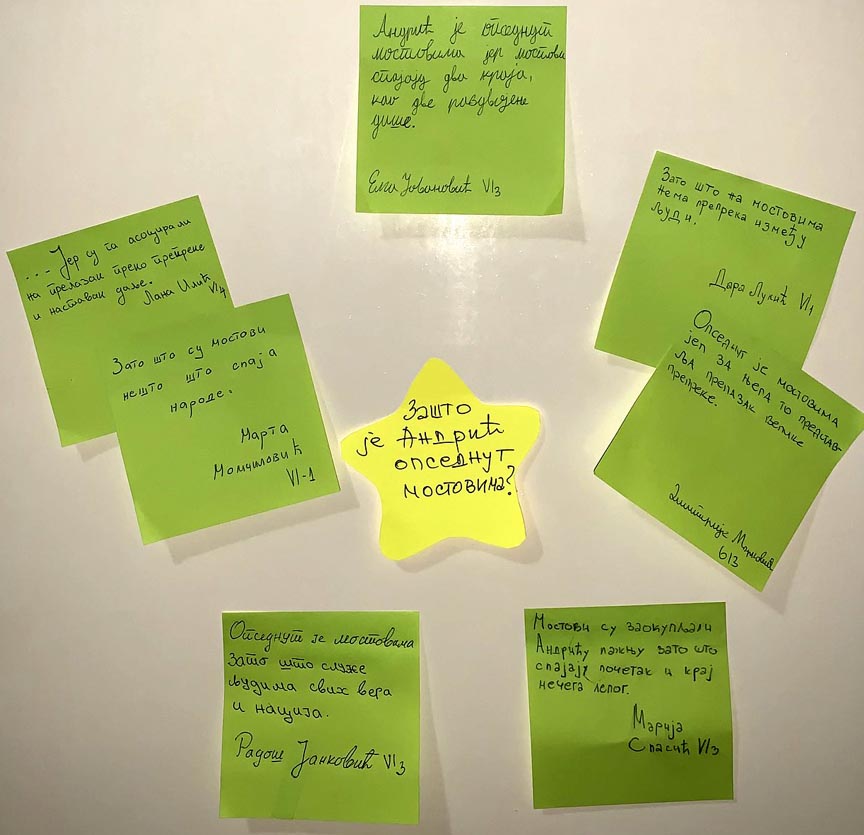 Андрић је опседнут
мостовима јер мостови
спајају два краја,
као две раздвојене
душе.
Ема Јовановић VI3
... Јер су га асоцирали
на прелазак преко препреке
и наставак даље.
Лана Илић VI4
Зато што су мостови
нешто што спаја
народе.
Марта
Момчиловић
VI-1
Зашто
је Андрић
опседнут
мостовима?
Зато што на мостовима
нема препрека између
људи.
Дара Лукић VI1
Опседнут је мостовима
јеп за њега то представ
ља препазак велике
препреке.
Димитрије
6/3
Опседнут је мостовима
зато што служе
људима свих вера
и нација.
Радош Јанковић VI3
Мостови су заокупљали
Андрићу пажњу зато што
спајају почетак и крај
нечега лепог.
Марија
Спасић VI3